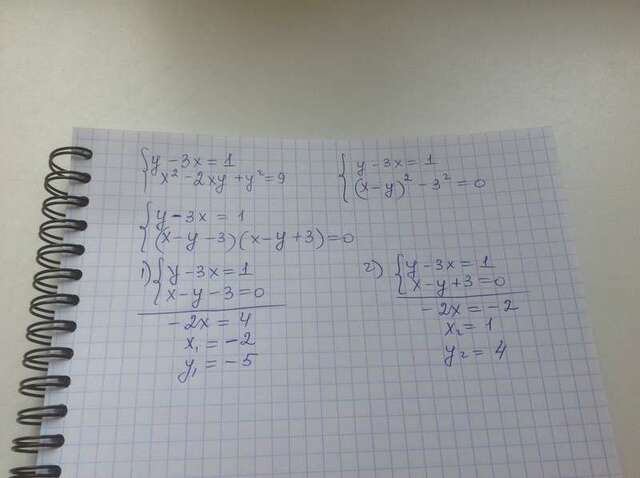 { y - 3x = 1
x² - 2xy + y² = 9
{ y - 3x = 1
(x-y)² - 3² = 0
{ y - 3x = 1
(x-y-3)(x-y+3)=0
1) { y - 3x = 1
x - y - 3 = 0
- 2x = 4
x₁ = -2
y₁ = -5
2) { y - 3x = 1
x - y + 3 = 0
- 2x = -2
x₂ = 1
y₂ = 4